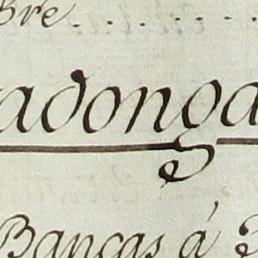 bre . . . . .
adonga
Bancas á 3